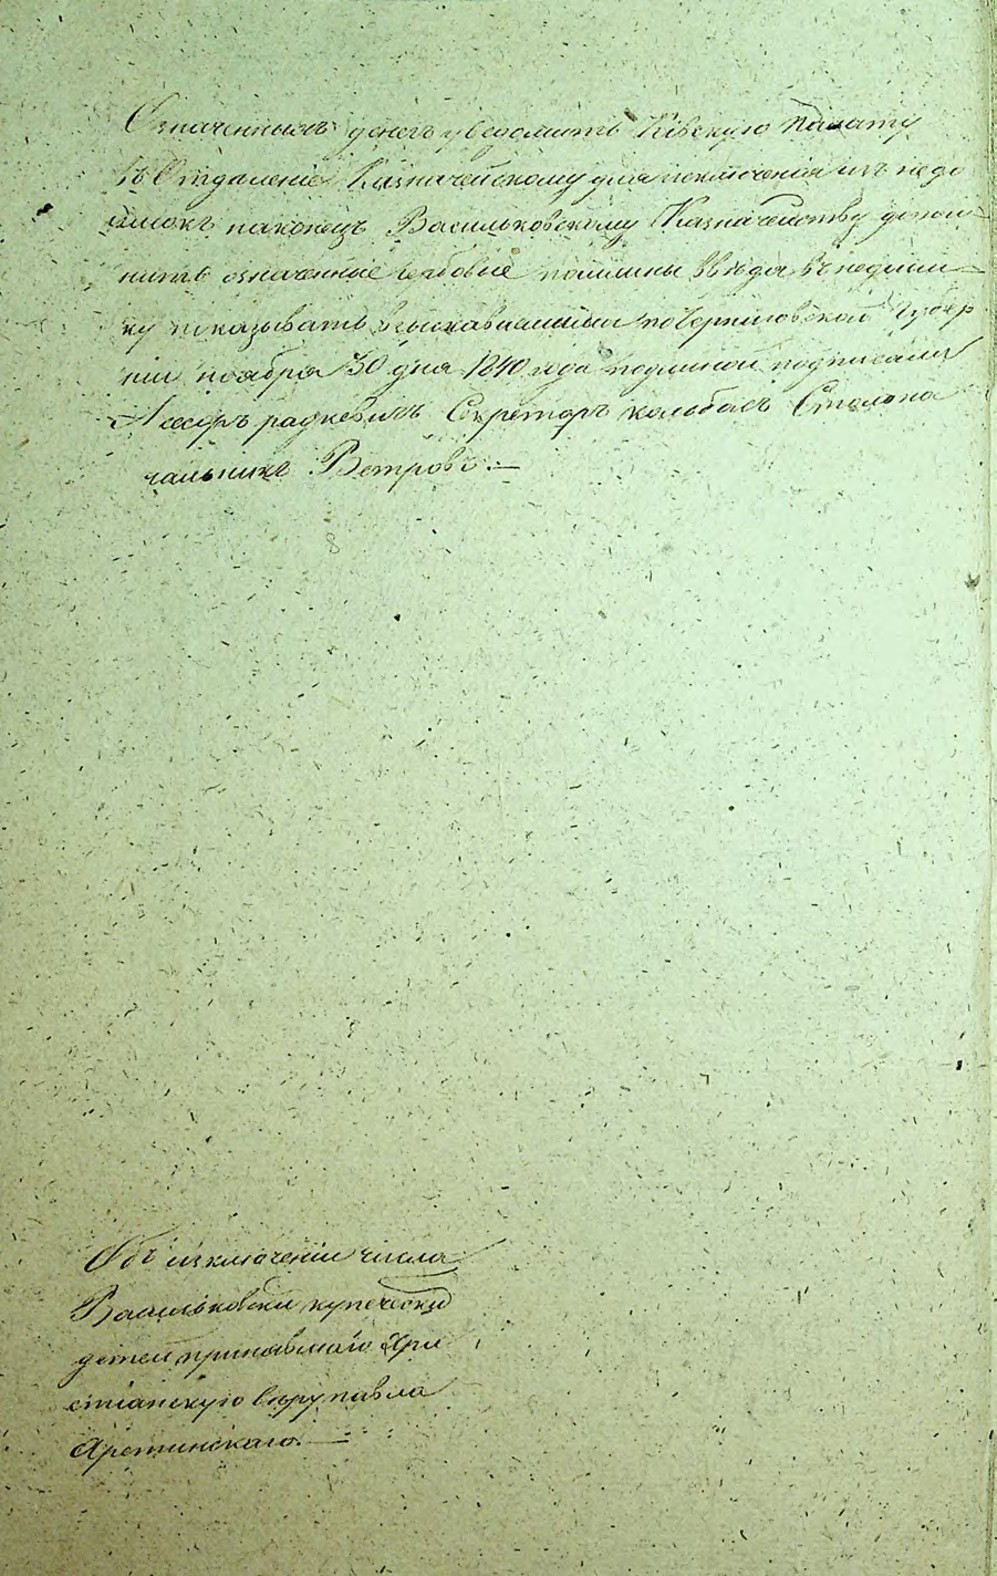 Означенныхъ денегъ уведомить Кіевскую палату
въ Отдаленіе Казначейскому для исключенія изъ недо
имокъ наконецъ Васильковскому Казначейству допол
нить означенные гербовые пошлины въ недоим
ку показывать взыскавшимися по Черниговской Губер
ніи ноября 30 дня 1840 года подлиной подписали
Асесоръ радкевичъ Секретарь кольбасъ Столона
чальникъ Ветровъ. —
Объ изключеніи числа
Васильковски купечески
детей принявшаго Хри
стіанскую веру павла
Аретинскаго. —